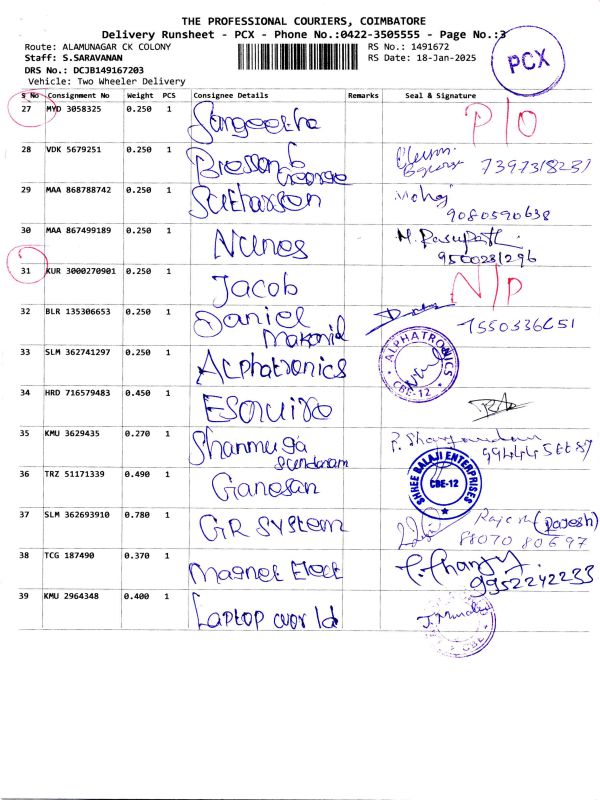 THE PROFESSIONAL COURIERS, COIMBATORE
Delivery Runsheet - PCX - Phone No.:0422-3505555 - Page No.:3
Route: ALAMUNAGAR CK COLONY
RS No.: 1491672
PCX
Staff: S.SARAVANAN
RS Date: 18-Jan-2025
DRS No.: DCJB149167203
Vehicle: Two Wheeler Delivery
S No Consignment No Weight PCS Consignee Details Remarks Seal & Signature
27 MYD 3058325 0.250 1 Sangeetha P/O
28 VDK 5679251 0.250 1 Bresson George 7397318231
29 MAA 868788742 0.250 1 Sutharson
9080590638
30 MAA 867499189 0.250 1 Nunes M. Pasupathi
9500281296
31 KUR 3000270901 0.250 1 Jacob N/D
32 BLR 135306653 0.250 1 Daniel 7550336651
33 SLM 362741297 0.250 1 Alphatronics ALPHATRONICS CBE-12
34 HRD 716579483 0.450 1 Esquire
35 KMU 3629435 0.270 1 Shanmuga Sundaram
36 TRZ 51171339 0.490 1 Ganesan SHREE BALAJI ENTERPRISES CBE-12
37 SLM 362693910 0.780 1 GR System Rajesh (Rajesh)
88070 80697
38 TCG 187490 0.370 1 Magnet Elect
9952242233
39 KMU 2964348 0.400 1 Laptop world